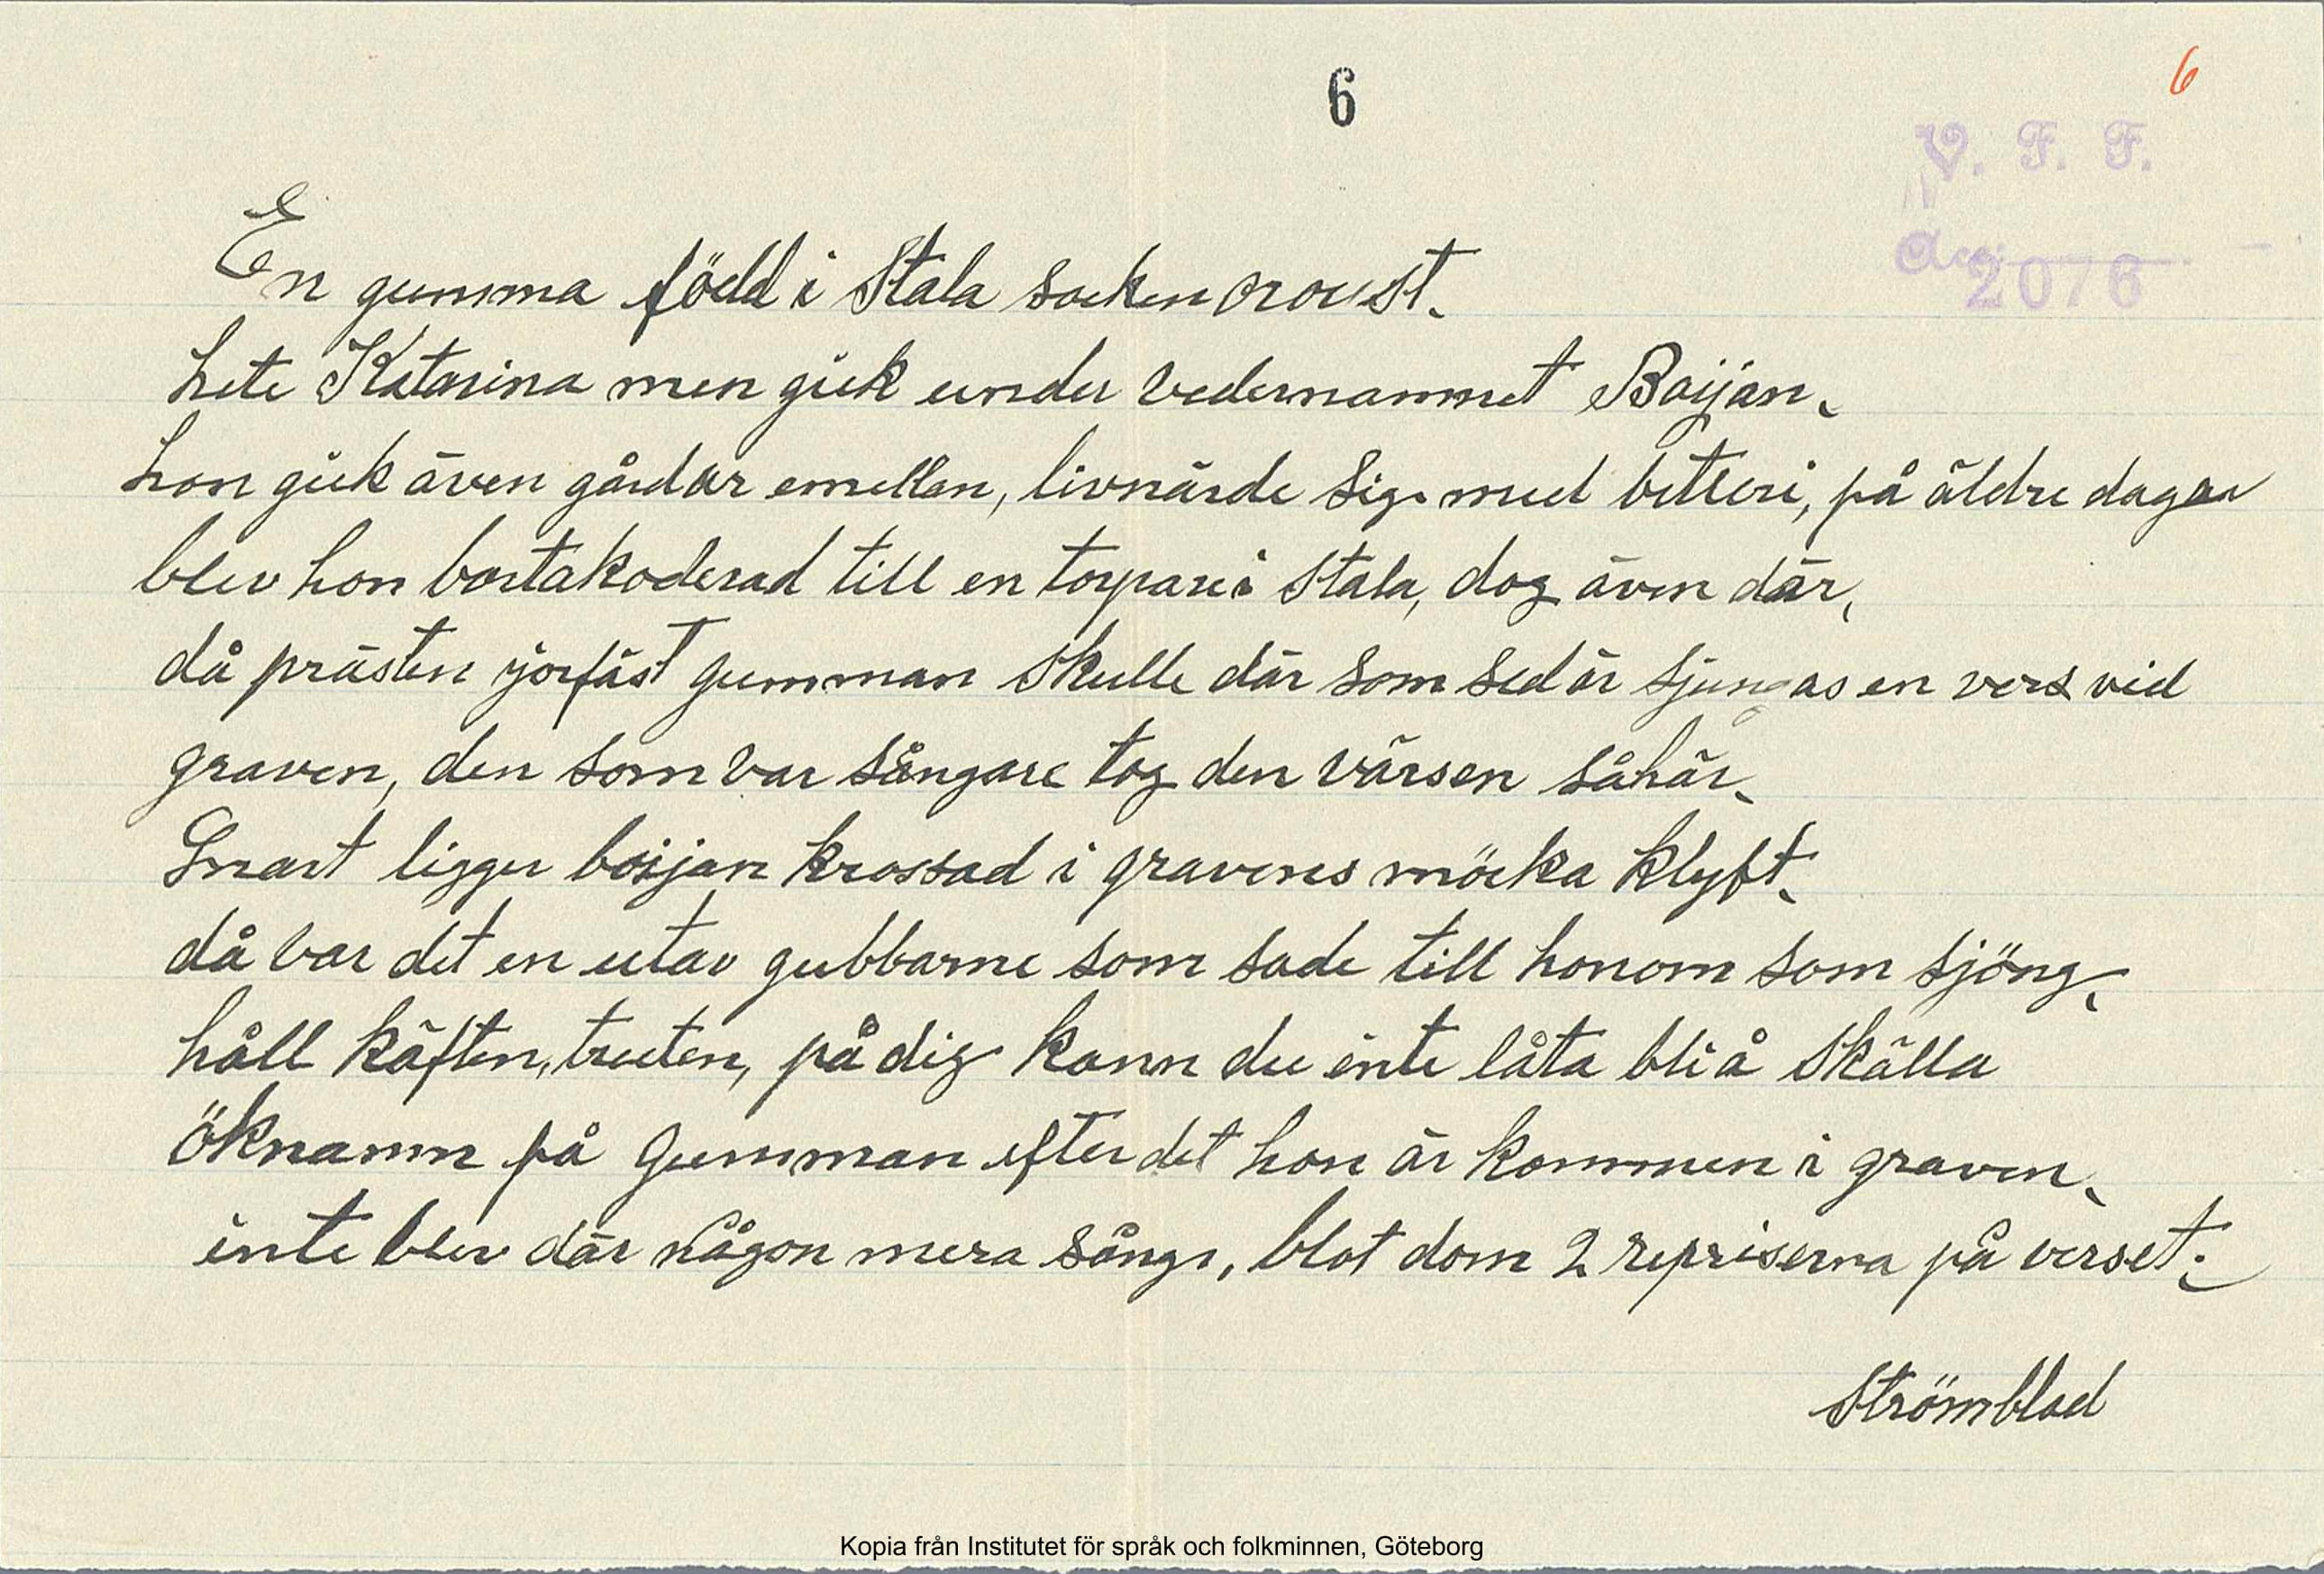 6
6
V. F. F.
Acc. 2076
En gumma född i Stala socken oroust.
hete Katarina men gick under vedernamnet Boijan.
hon gick även gårdar emellan, livnärde sig med betleri, på äldre dagar
blev hon bortakoderad till en torpare i Stala, dog även där,
då prästen jorfäst gumman skulle där som sed är sjungas en vers vid
graven, den som var sångare tog den värsen såhär.
Snart ligger boijan krossad i gravens möcka klyft.
då var det en utav gubbarne som sade till honom som sjöng.
håll käften, truten, på dig kann du inte låta bli å skälla
öknamn på gumman efter det hon är kommen i graven.
inte blev där någon mera sång, blot dom 2 repriserna på verset.
Strömblad
Kopia från Institutet för språk och folkminnen, Göteborg